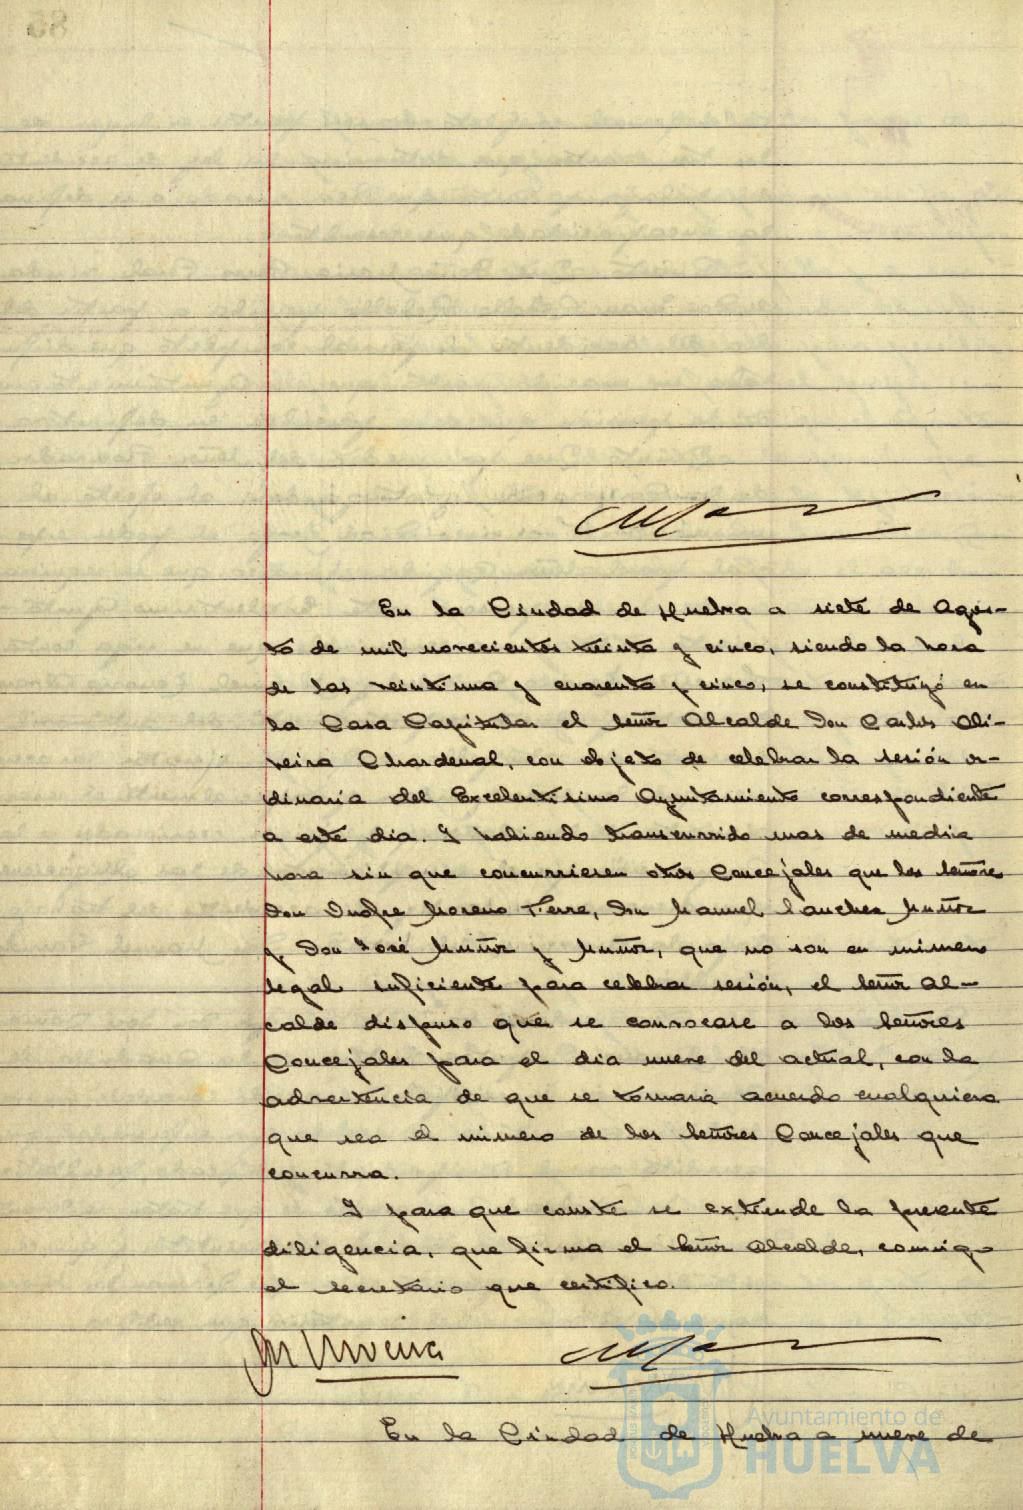 En la Ciudad de Huelva a siete de Agos-
to de mil novecientos treinta y cinco, siendo la hora
de las veintiuna y cuarenta y cinco, se constituyó en
la Casa Capitular el Señor Alcalde Don Carlos Oli-
veira Chardenal, con objeto de celebrar la sesión or-
dinaria del Excelentísimo Ayuntamiento correspondiente
a este dia. Y habiendo transcurrido mas de media
hora sin que concurriesen otros Concejales que los Señores
Don Onofre Moreno Terre, Don Manuel Sanchez Muñoz
y Don José Muñoz y Muñoz, que no son en número
legal suficiente para celebrar sesión, el Señor Al-
calde dispuso que se convocase a los Señores
Concejales para el dia nueve del actual, con la
advertencia de que se tomaria acuerdo cualquiera
que sea el número de los Señores Concejales que
concurra.
Y para que conste se extiende la presente
diligencia, que firma el Señor Alcalde, conmigo
el Secretario que certifico.
Oliveira
En la Ciudad de Huelva a nueve de
Ayuntamiento de
HUELVA